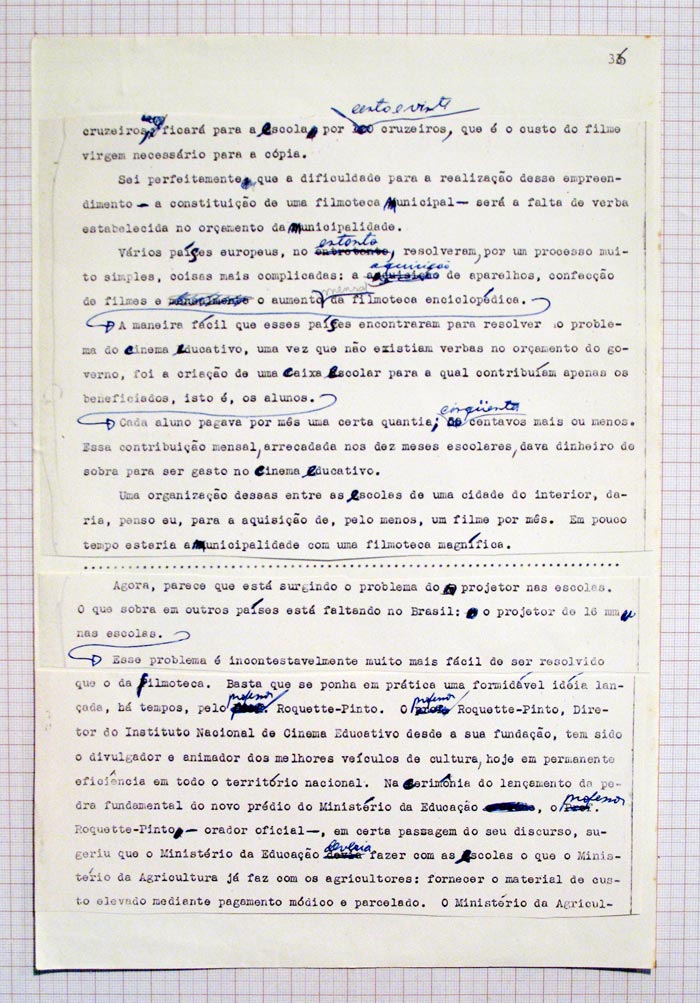 36
cento e vinte
cruzeiros, ficará para a escola, por 120 cruzeiros, que é o custo do filme
virgem necessário para a cópia.
Sei perfeitamente que a dificuldade para a realização desse empreen-
dimento — a constituição de uma filmoteca municipal — será a falta de verba
estabelecida no orçamento da municipalidade.
entanto
Vários países europeus, no entretanto, resolveram, por um processo mui-
aquisição
to simples, coisas mais complicadas: a aquisição de aparelhos, confecção
mensal
de filmes e mensalmente o aumento da filmoteca enciclopédica.
A maneira fácil que esses países encontraram para resolver o proble-
ma do cinema educativo, uma vez que não existiam verbas no orçamento do go-
verno, foi a criação de uma caixa escolar para a qual contribuíam apenas os
beneficiados, isto é, os alunos.
cinqüenta
Cada aluno pagava por mês uma certa quantia; 50 centavos mais ou menos.
Essa contribuição mensal, arrecadada nos dez meses escolares, dava dinheiro de
sobra para ser gasto no cinema educativo.
Uma organização dessas entre as escolas de uma cidade do interior, da-
ria, penso eu, para a aquisição de, pelo menos, um filme por mês. Em pouco
tempo estaria a municipalidade com uma filmoteca magnífica.
................................................................
Agora, parece que está surgindo o problema do projetor nas escolas.
O que sobra em outros países está faltando no Brasil: o projetor de 16 mm
nas escolas.
Esse problema é incontestavelmente muito mais fácil de ser resolvido
que o da filmoteca. Basta que se ponha em prática uma formidável idéia lan-
professor professor
çada, há tempos, pelo Prof. Roquette-Pinto. O Prof. Roquette-Pinto, Dire-
tor do Instituto Nacional de Cinema Educativo desde a sua fundação, tem sido
o divulgador e animador dos melhores veículos de cultura, hoje em permanente
eficiência em todo o território nacional. Na cerimônia do lançamento da pe-
professor
dra fundamental do novo prédio do Ministério da Educação, o Prof.
Roquette-Pinto — orador oficial —, em certa passagem do seu discurso, su-
deveria
geriu que o Ministério da Educação devia fazer com as escolas o que o Minis-
tério da Agricultura já faz com os agricultores: fornecer o material de cus-
to elevado mediante pagamento módico e parcelado. O Ministério da Agricul-